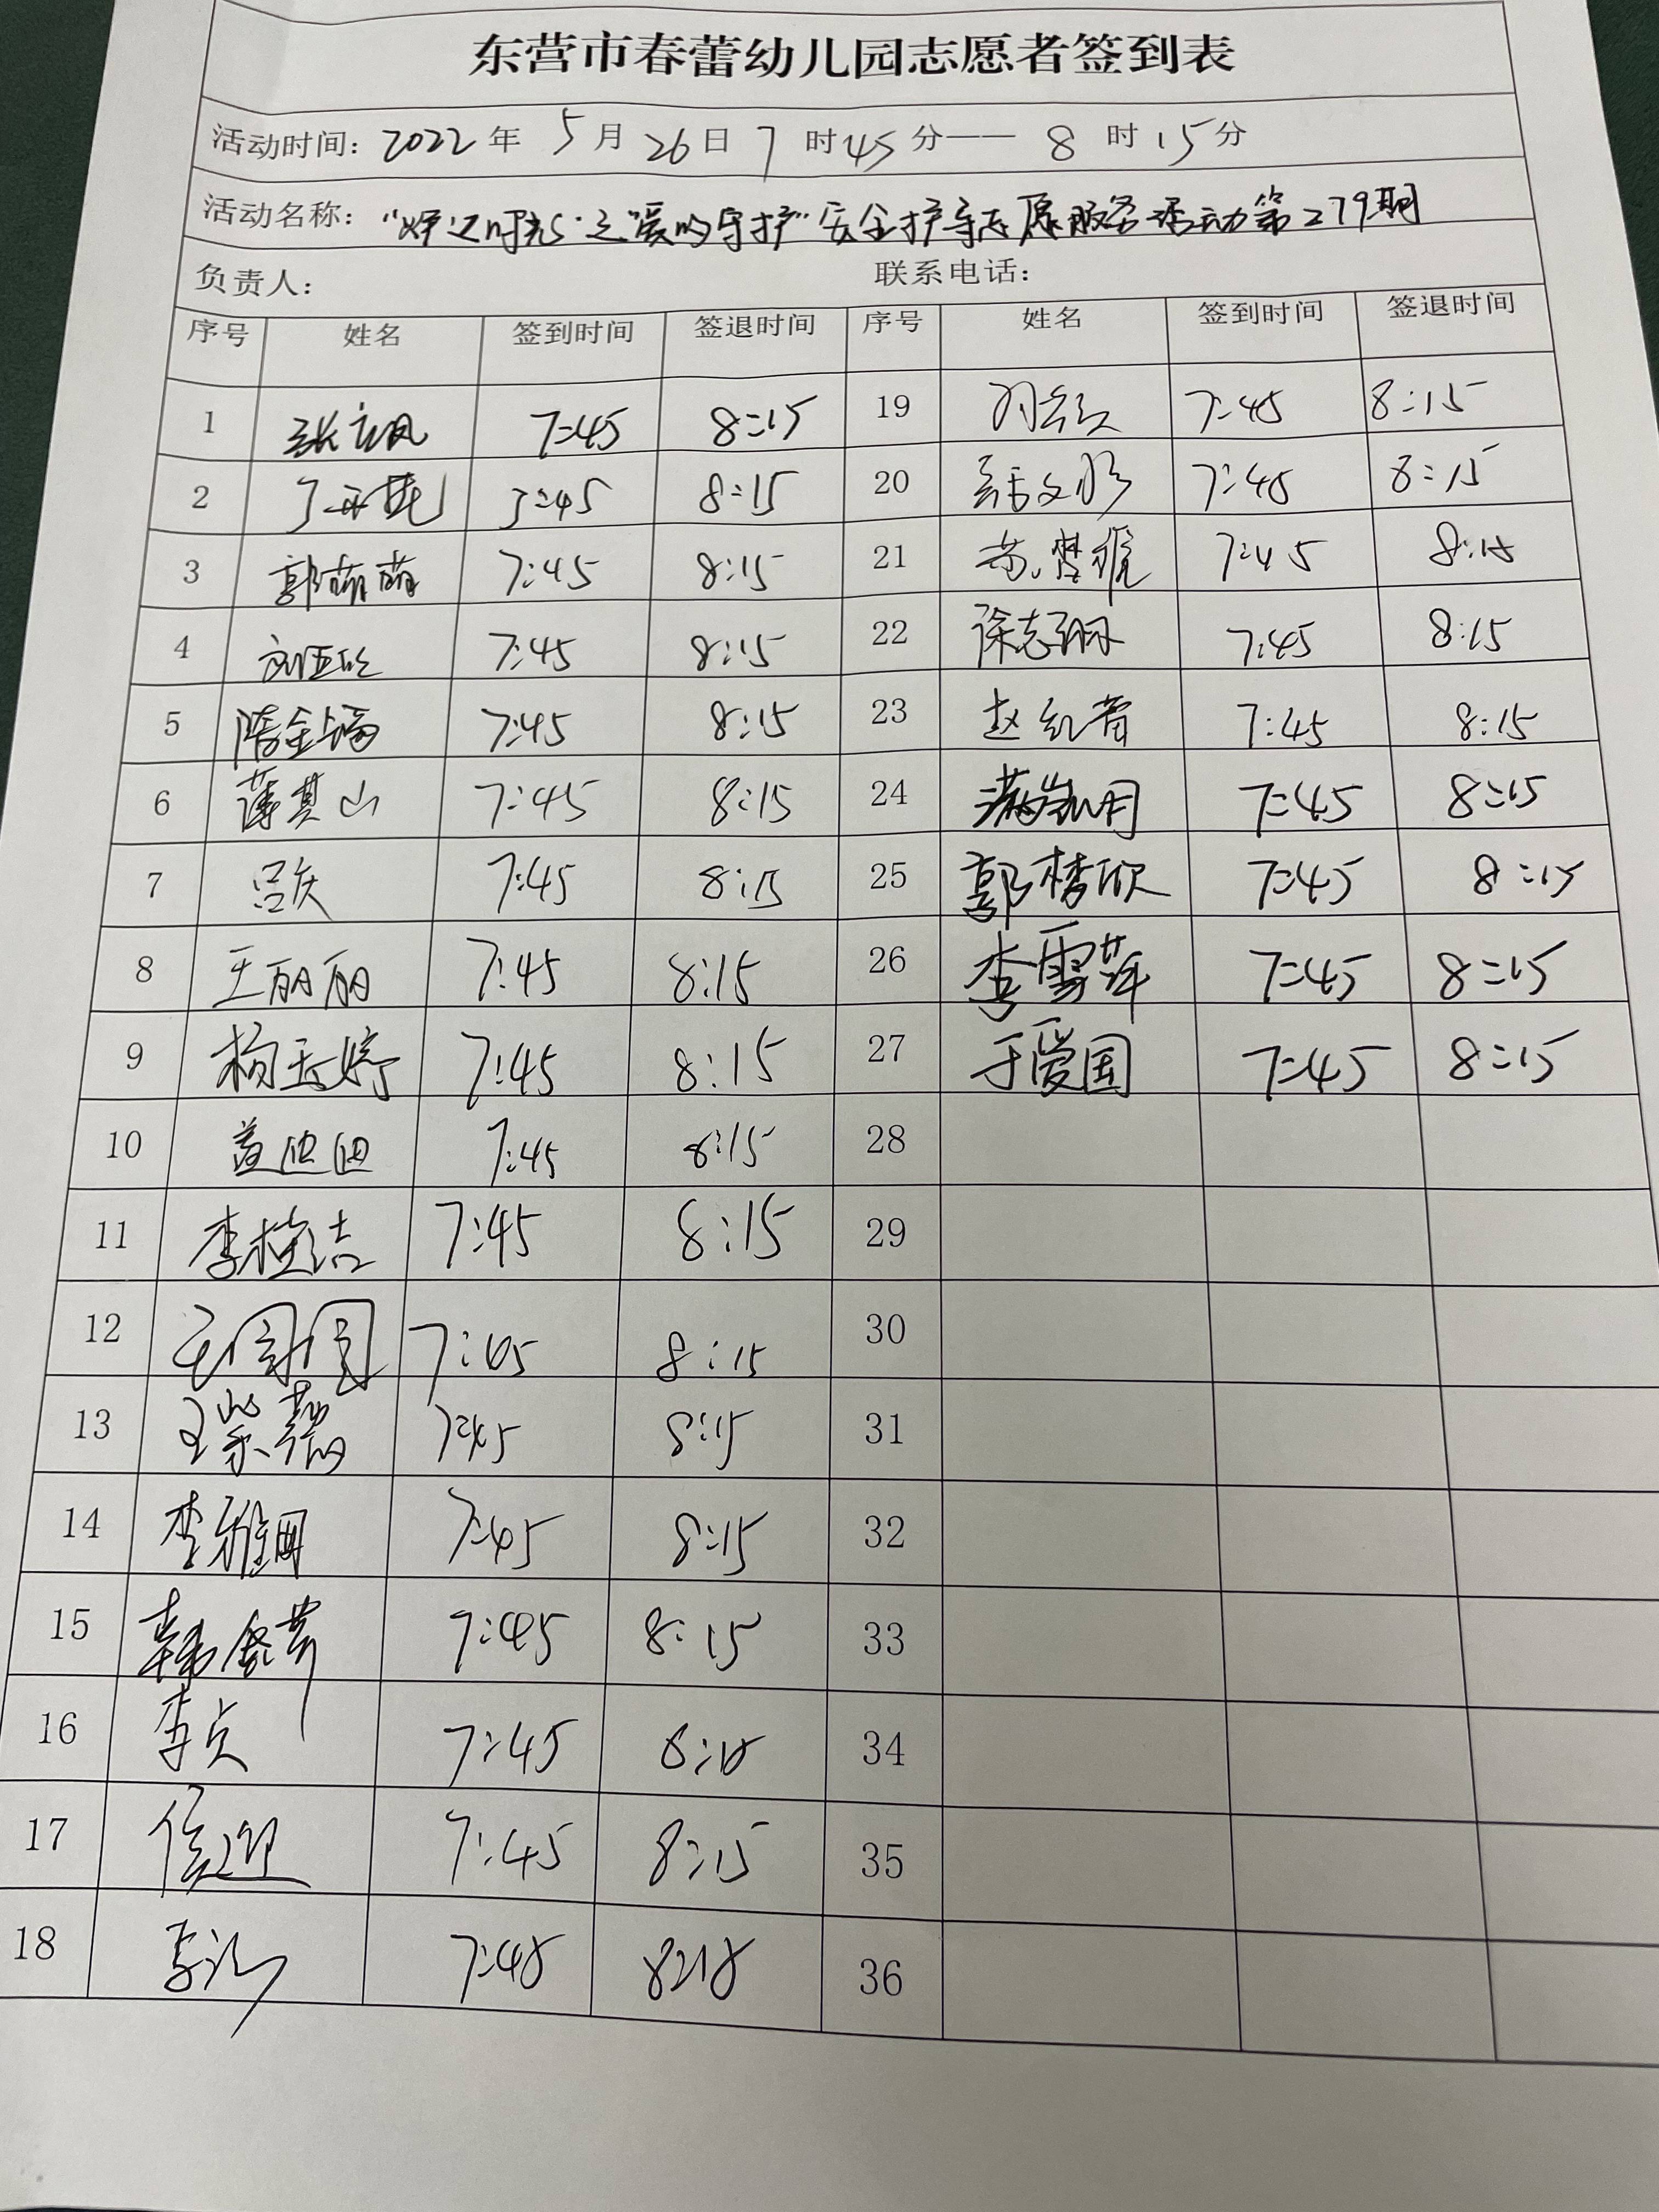 东营市春蕾幼儿园志愿者签到表
活动时间：2022年 5月 26日 7 时 45分—— 8 时 15分
活动名称： 之爱的守护”安全护导志愿服务活动第279期
负责人： 联系电话：
序号 姓名 签到时间 签退时间 序号 姓名 签到时间 签退时间
1 7:45 8:15 19 7:45 8:15
2 7:45 8:15 20 7:45 8:15
3 郭萌萌 7:45 8:15 21 7:45 8:15
4 刘亚 7:45 8:15 22 徐志 7:45 8:15
5 隋金 7:45 8:15 23 赵红 7:45 8:15
6 薄其山 7:45 8:15 24 7:45 8:15
7 吕庆 7:45 8:15 25 郭梦欣 7:45 8:15
8 王丽丽 7:45 8:15 26 李雪萍 7:45 8:15
9 杨玉婷 7:45 8:15 27 于爱国 7:45 8:15
10 盖 7:45 8:15 28
11 李桂洁 7:45 8:15 29
12 7:45 8:15 30
13 王紫 7:45 8:15 31
14 李雅 7:45 8:15 32
15 韩 7:45 8:15 33
16 李贞 7:45 8:15 34
17 侯迎 7:45 8:15 35
18 李 7:45 8:15 36